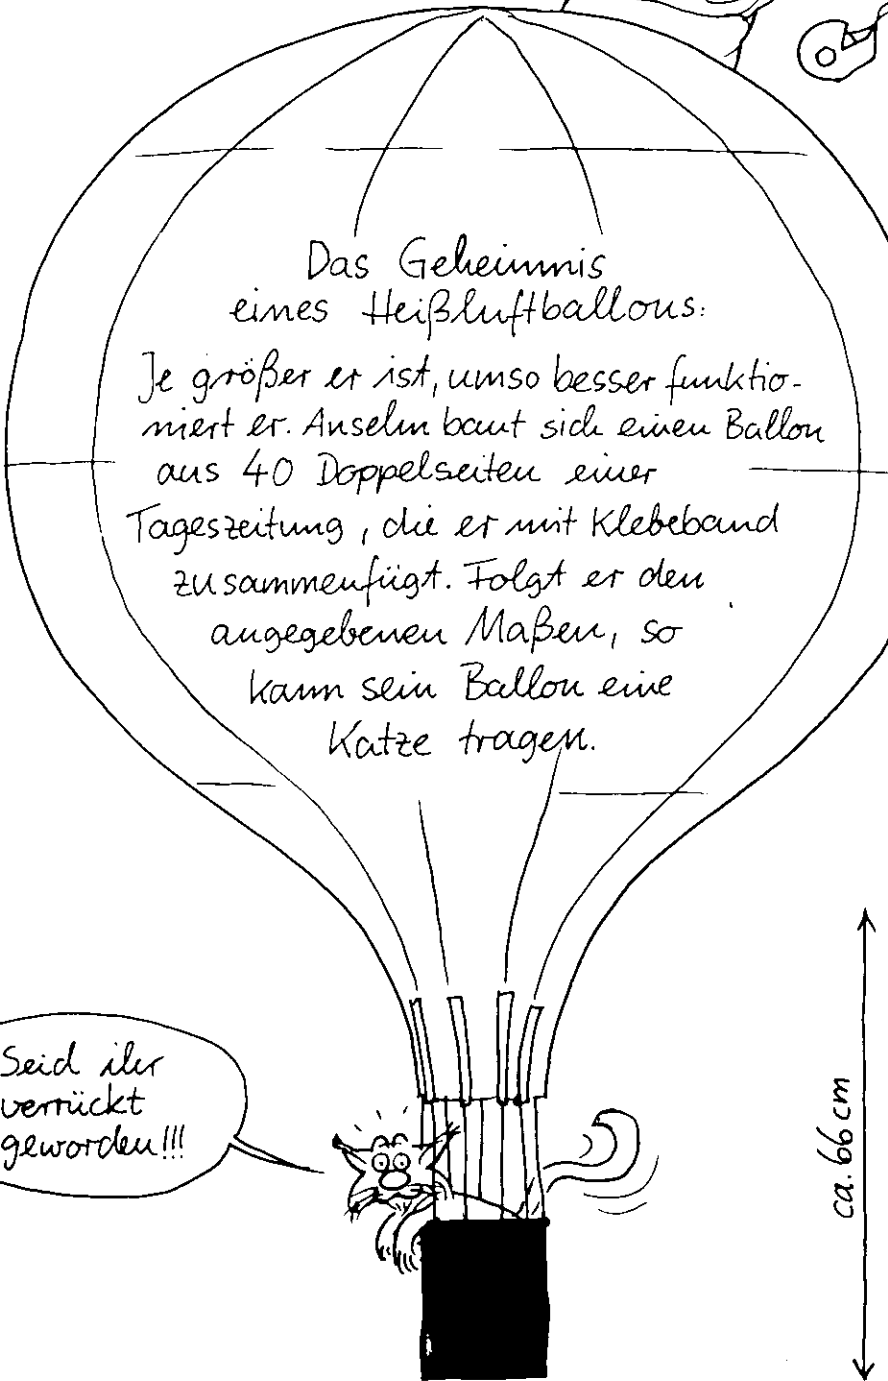 Das Geheimnis
eines Heißluftballons:
Je größer er ist, umso besser funktio-
niert er. Anselm baut sich einen Ballon
aus 40 Doppelseiten einer
Tageszeitung, die er mit Klebeband
zusammenfügt. Folgt er den
angegebenen Maßen, so
kann sein Ballon eine
Katze tragen.
Seid ihr
verrückt
geworden!!!
ca. 66 cm